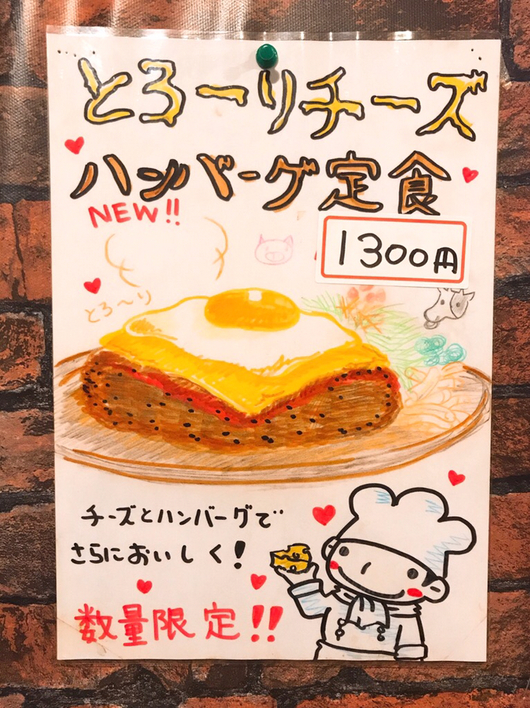 とろーりチーズ
ハンバーグ定食
NEW!!
1300円
とろ〜り
チーズとハンバーグで
さらにおいしく!
数量限定!!